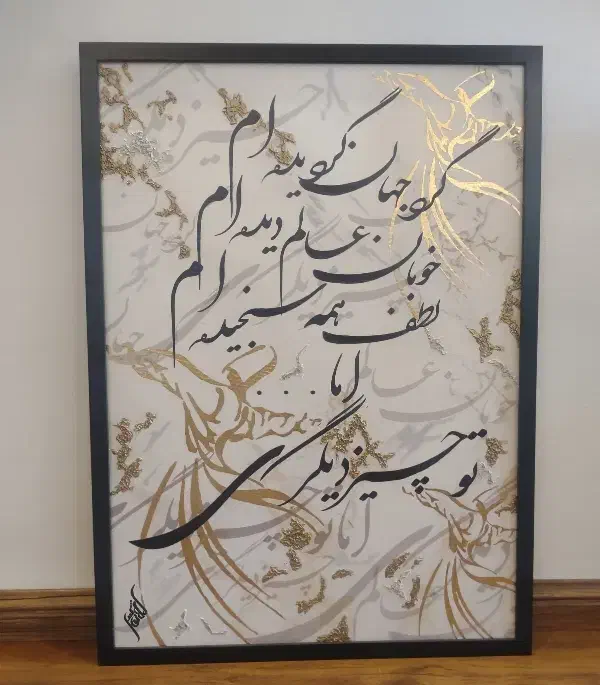 گرد جهان گردیده ام
خوبان عالم دیده ام
لطف همه سنجیده ام
اما . . .
تو چیز دیگری